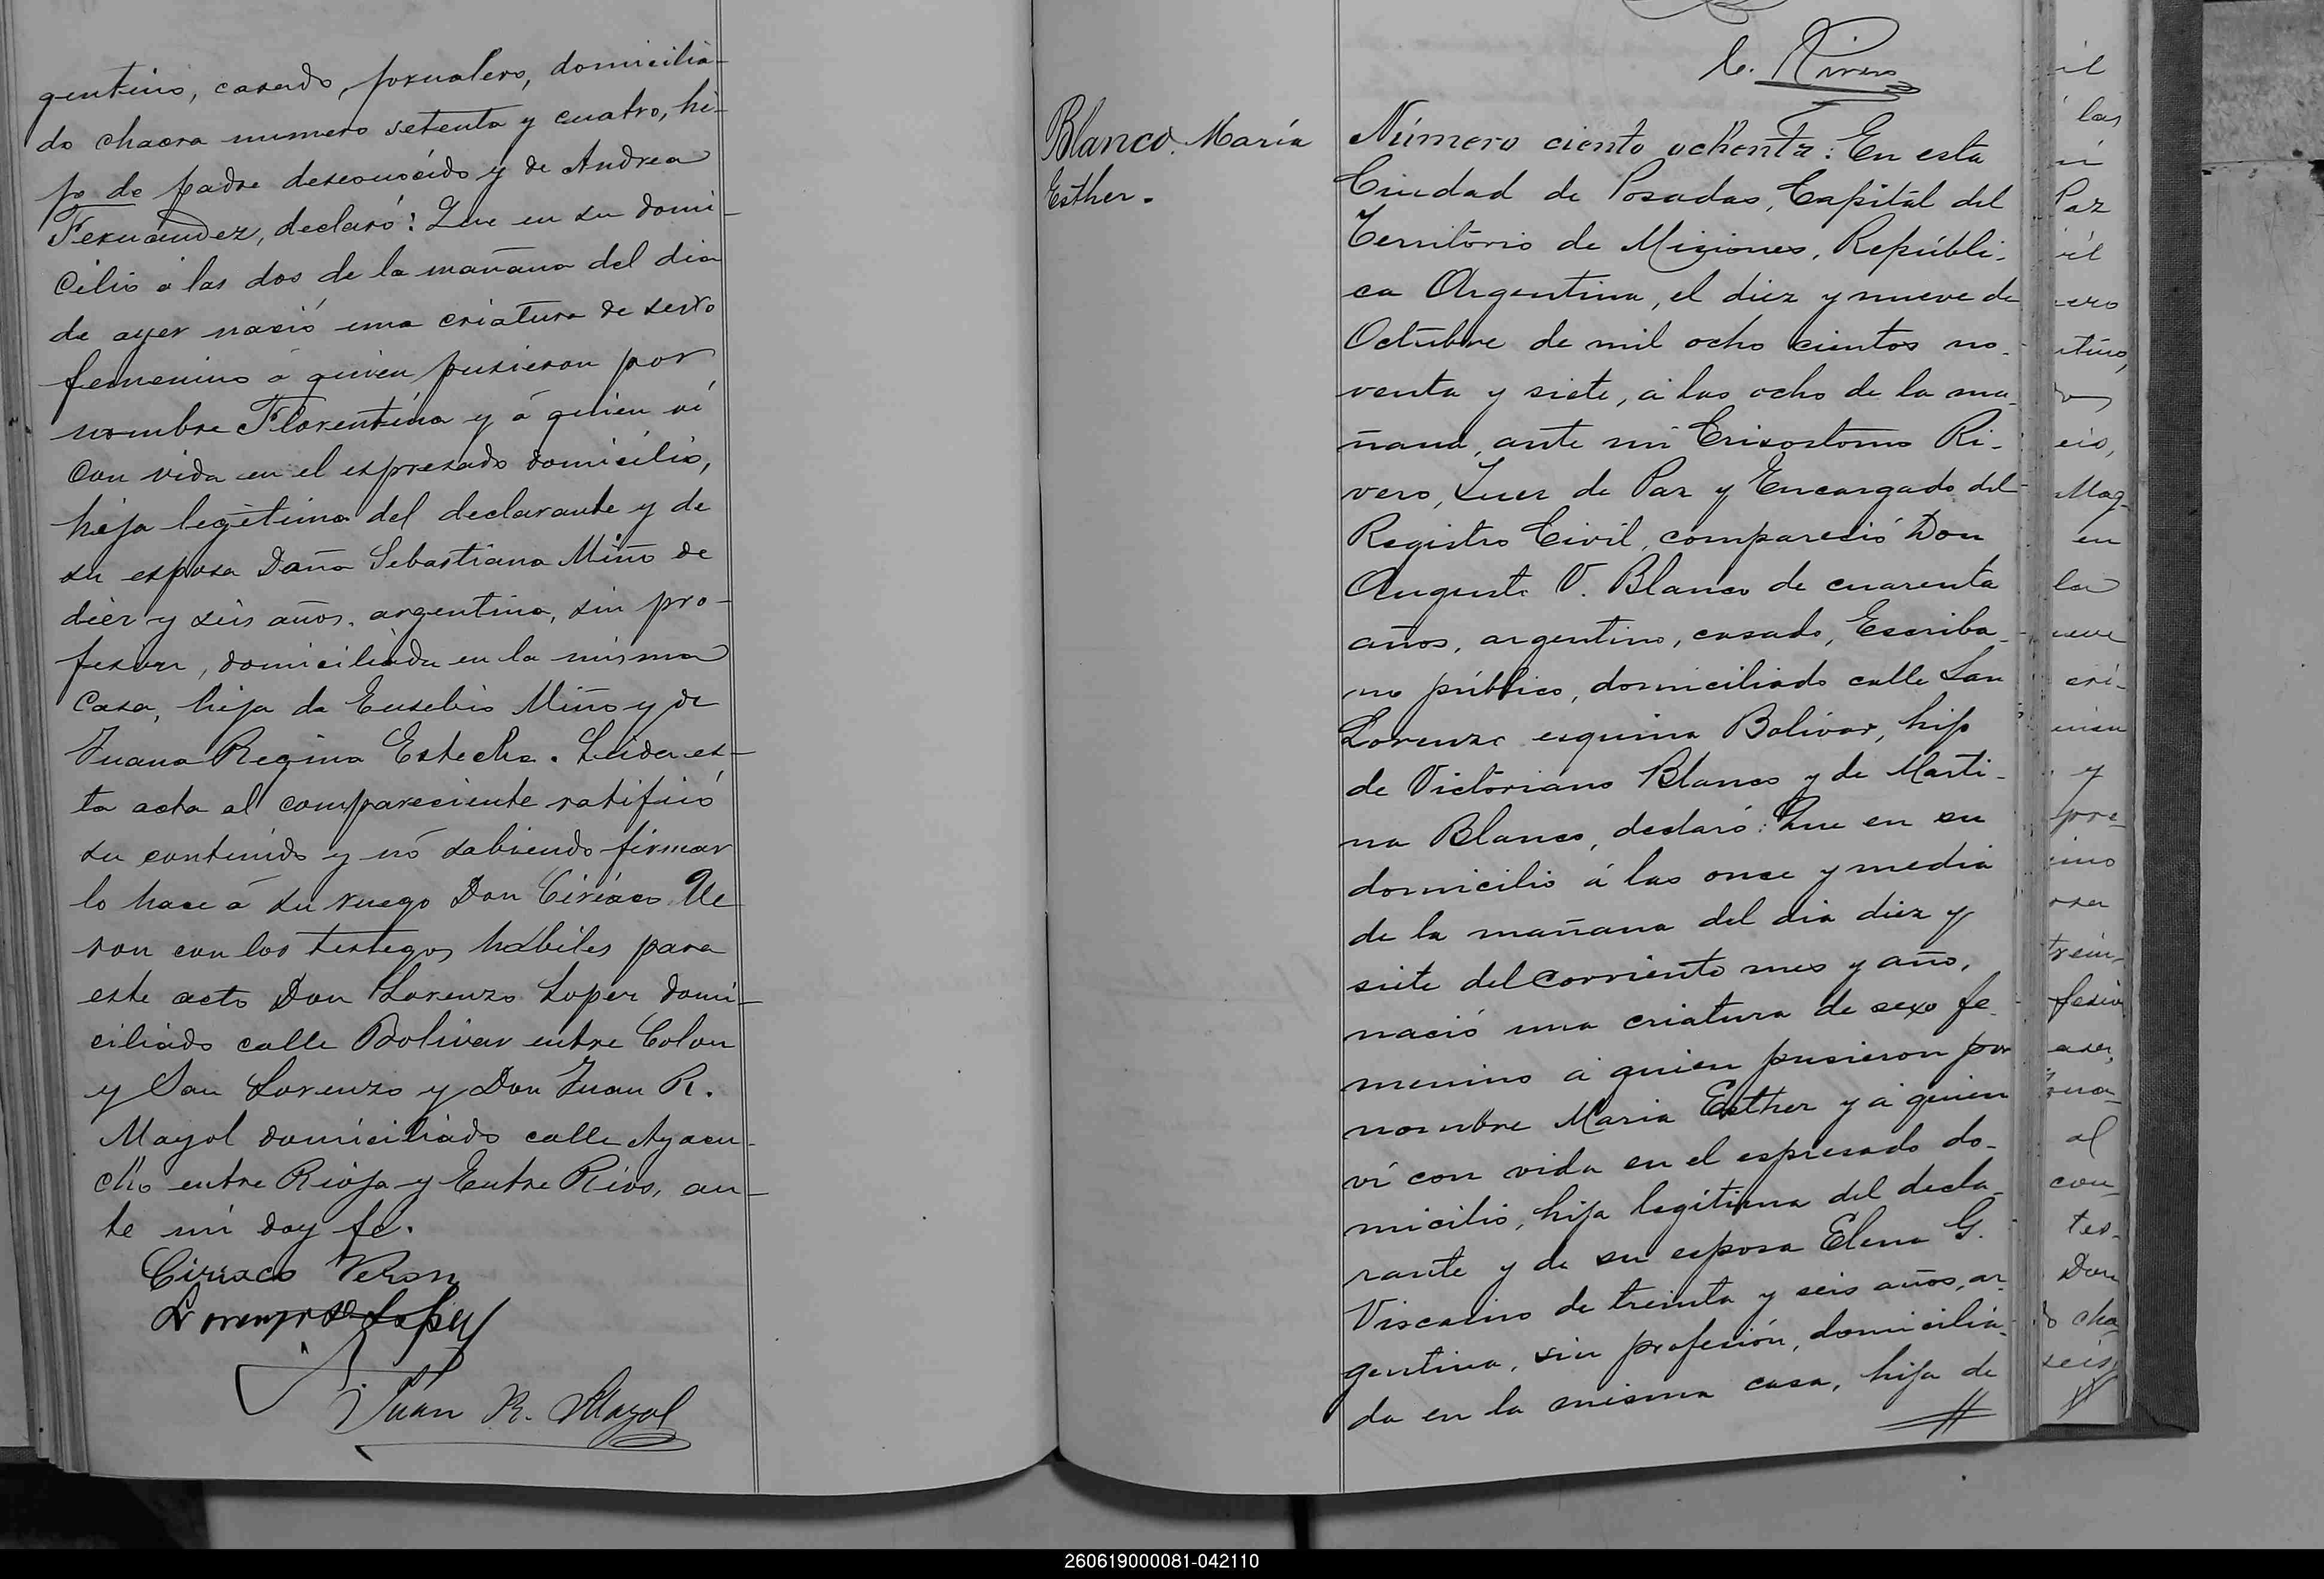 gentino, casado, jornalero, domicilia-
do chacra numero setenta y cuatro, hi-
jo de padre desconocido y de Andrea
Fernandez, declaró: Que en su domi-
cilio á las dos de la mañana del dia
de ayer nació una criatura de sexo
femenino á quien pusieron por
nombre Florentina y á quien ví
con vida en el espresado domicilio,
hija legítima del declarante y de
su esposa Doña Sebastiana Miño de
diez y seis años, argentina, sin pro-
fesion, domiciliada en la misma
casa, hija de Eusebio Miño y de
Juana Regina Esteche. Leida es-
ta acta al compareciente ratificó
su contenido y nó sabiendo firmar
lo hace á su ruego Don Ciriaco Ve
ron con los testigos habiles para
este acto Don Lorenzo Lopez domi-
ciliado calle Bolivar entre Colon
y San Lorenzo y Don Juan R.
Mayol domiciliado calle Ayacu-
cho entre Rioja y Entre Rios, an-
te mi doy fe.
Ciriaco Veron
Lorenzo Lopez
Juan R. Mayol
C. Rivero
Blanco María
Esther.
Número ciento ochenta: En esta
Ciudad de Posadas, Capital del
Territorio de Misiones, Repúbli-
ca Argentina, el diez y nueve de
Octubre de mil ocho cientos no-
venta y siete, á las ocho de la ma-
ñana, ante mi Crisostomo Ri-
vero, Juez de Paz y Encargado del
Registro Civil, compareció Don
Augusto V. Blanco de cuarenta
años, argentino, casado, Escriba-
no público, domiciliado calle San
Lorenzo esquina Bolívar, hijo
de Victoriano Blanco y de Marti-
na Blanco, declaró: Que en su
domicilio á las once y media
de la mañana del dia diez y
siete del corriente mes y año,
nació una criatura de sexo fe-
menino á quien pusieron por
nombre Maria Esther y á quien
ví con vida en el espresado do-
micilio, hija legítima del decla-
rante y de su esposa Elena G.
Viscaino de treinta y seis años, ar-
gentina, sin profesión, domicilia-
da en la misma casa, hija de
las
Paz
Mag-
en
la
y
al
con-
tes-
Don
cha-
seis
260619000081-042110